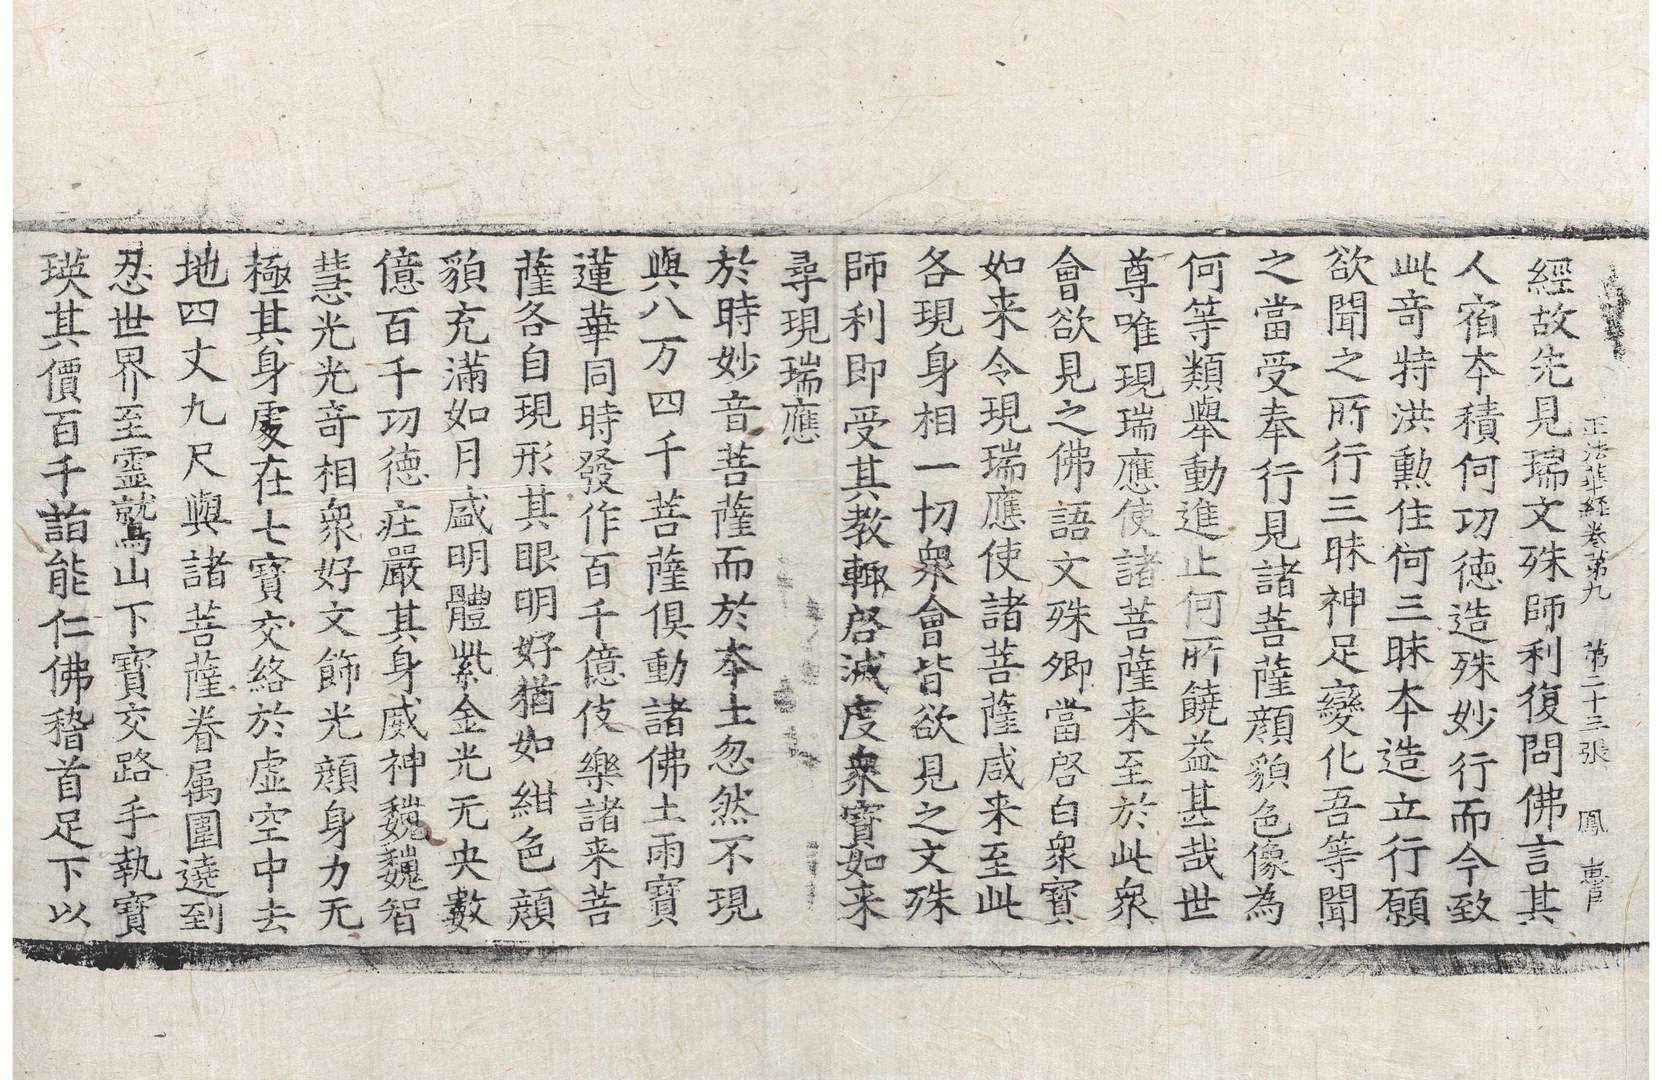 正法華經卷第九　第二十三張　鳳　惠戸
經故先見瑞文殊師利復問佛言其
人宿夲積何㓛徳造殊妙行而今致
此竒特洪勲住何三昧夲造立行願
欲聞之所行三昧神足變化吾等聞
之當受奉行見諸菩薩顔貌色像為
何等類舉動進止何所饒益甚哉世
尊唯現瑞應使諸菩薩来至於此衆
會欲見之佛語文殊卿當啓白衆寶
如来令現瑞應使諸菩薩咸来至此
各現身相一切衆會皆欲見之文殊
師利即受其教輙啓滅度衆寶如来
尋現瑞應
於時妙音菩薩而於夲土忽然不現
與八万四千菩薩俱動諸佛土雨寶
蓮華同時發作百千億伎樂諸来菩
薩各自現形其眼明好猶如紺色顔
貌充滿如月盛明體紫金光无央數
億百千㓛徳庄嚴其身威神巍巍智
慧光光竒相衆好文飾光顔身力无
極其身處在七寶交絡於虚空中去
地四丈九尺與諸菩薩眷属圍遶到
忍世界至霊鷲山下寶交路手執寶
瑛其價百千詣能仁佛稽首足下以